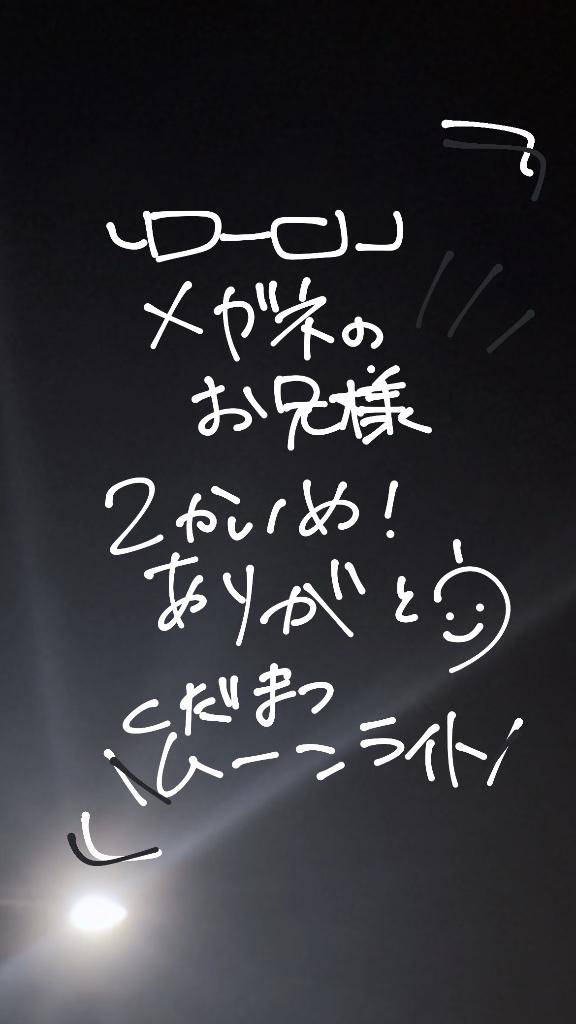 メガネの
お兄様
2かいめ!
ありがとう
くだまつ
ムーンライト